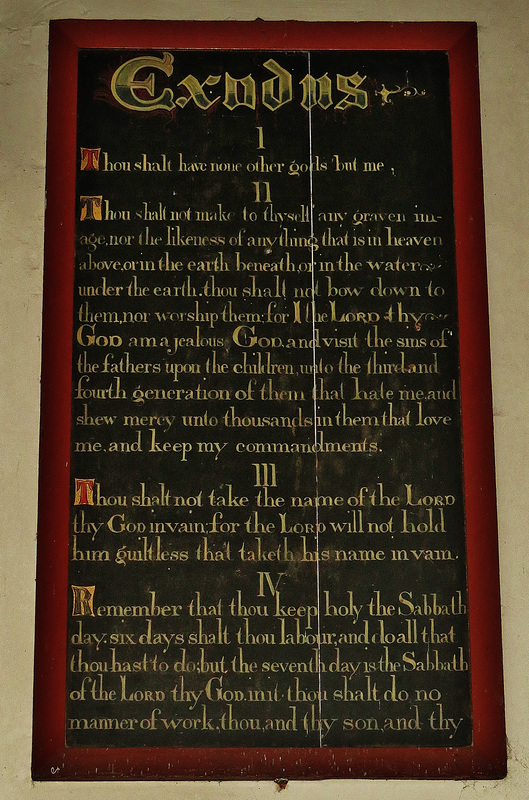 Exodus
I
Thou shalt have none other gods but me,
II
Thou shalt not make to thyself any graven im-
age, nor the likeness of any thing that is in heaven
above, or in the earth beneath, or in the water
under the earth, thou shalt not bow down to
them, nor worship them; for I the LORD thy
GOD am a jealous GOD, and visit the sins of
the fathers upon the children, unto the third and
fourth generation of them that hate me, and
shew mercy unto thousands in them that love
me, and keep my commandments.
III
Thou shalt not take the name of the LORD
thy GOD in vain; for the LORD will not hold
him guiltless that taketh his name in vain.
IV
Remember that thou keep holy the Sabbath
day. six days shalt thou labour, and do all that
thou hast to do; but the seventh day is the Sabbath
of the LORD thy GOD. in it thou shalt do no
manner of work, thou, and thy son, and thy